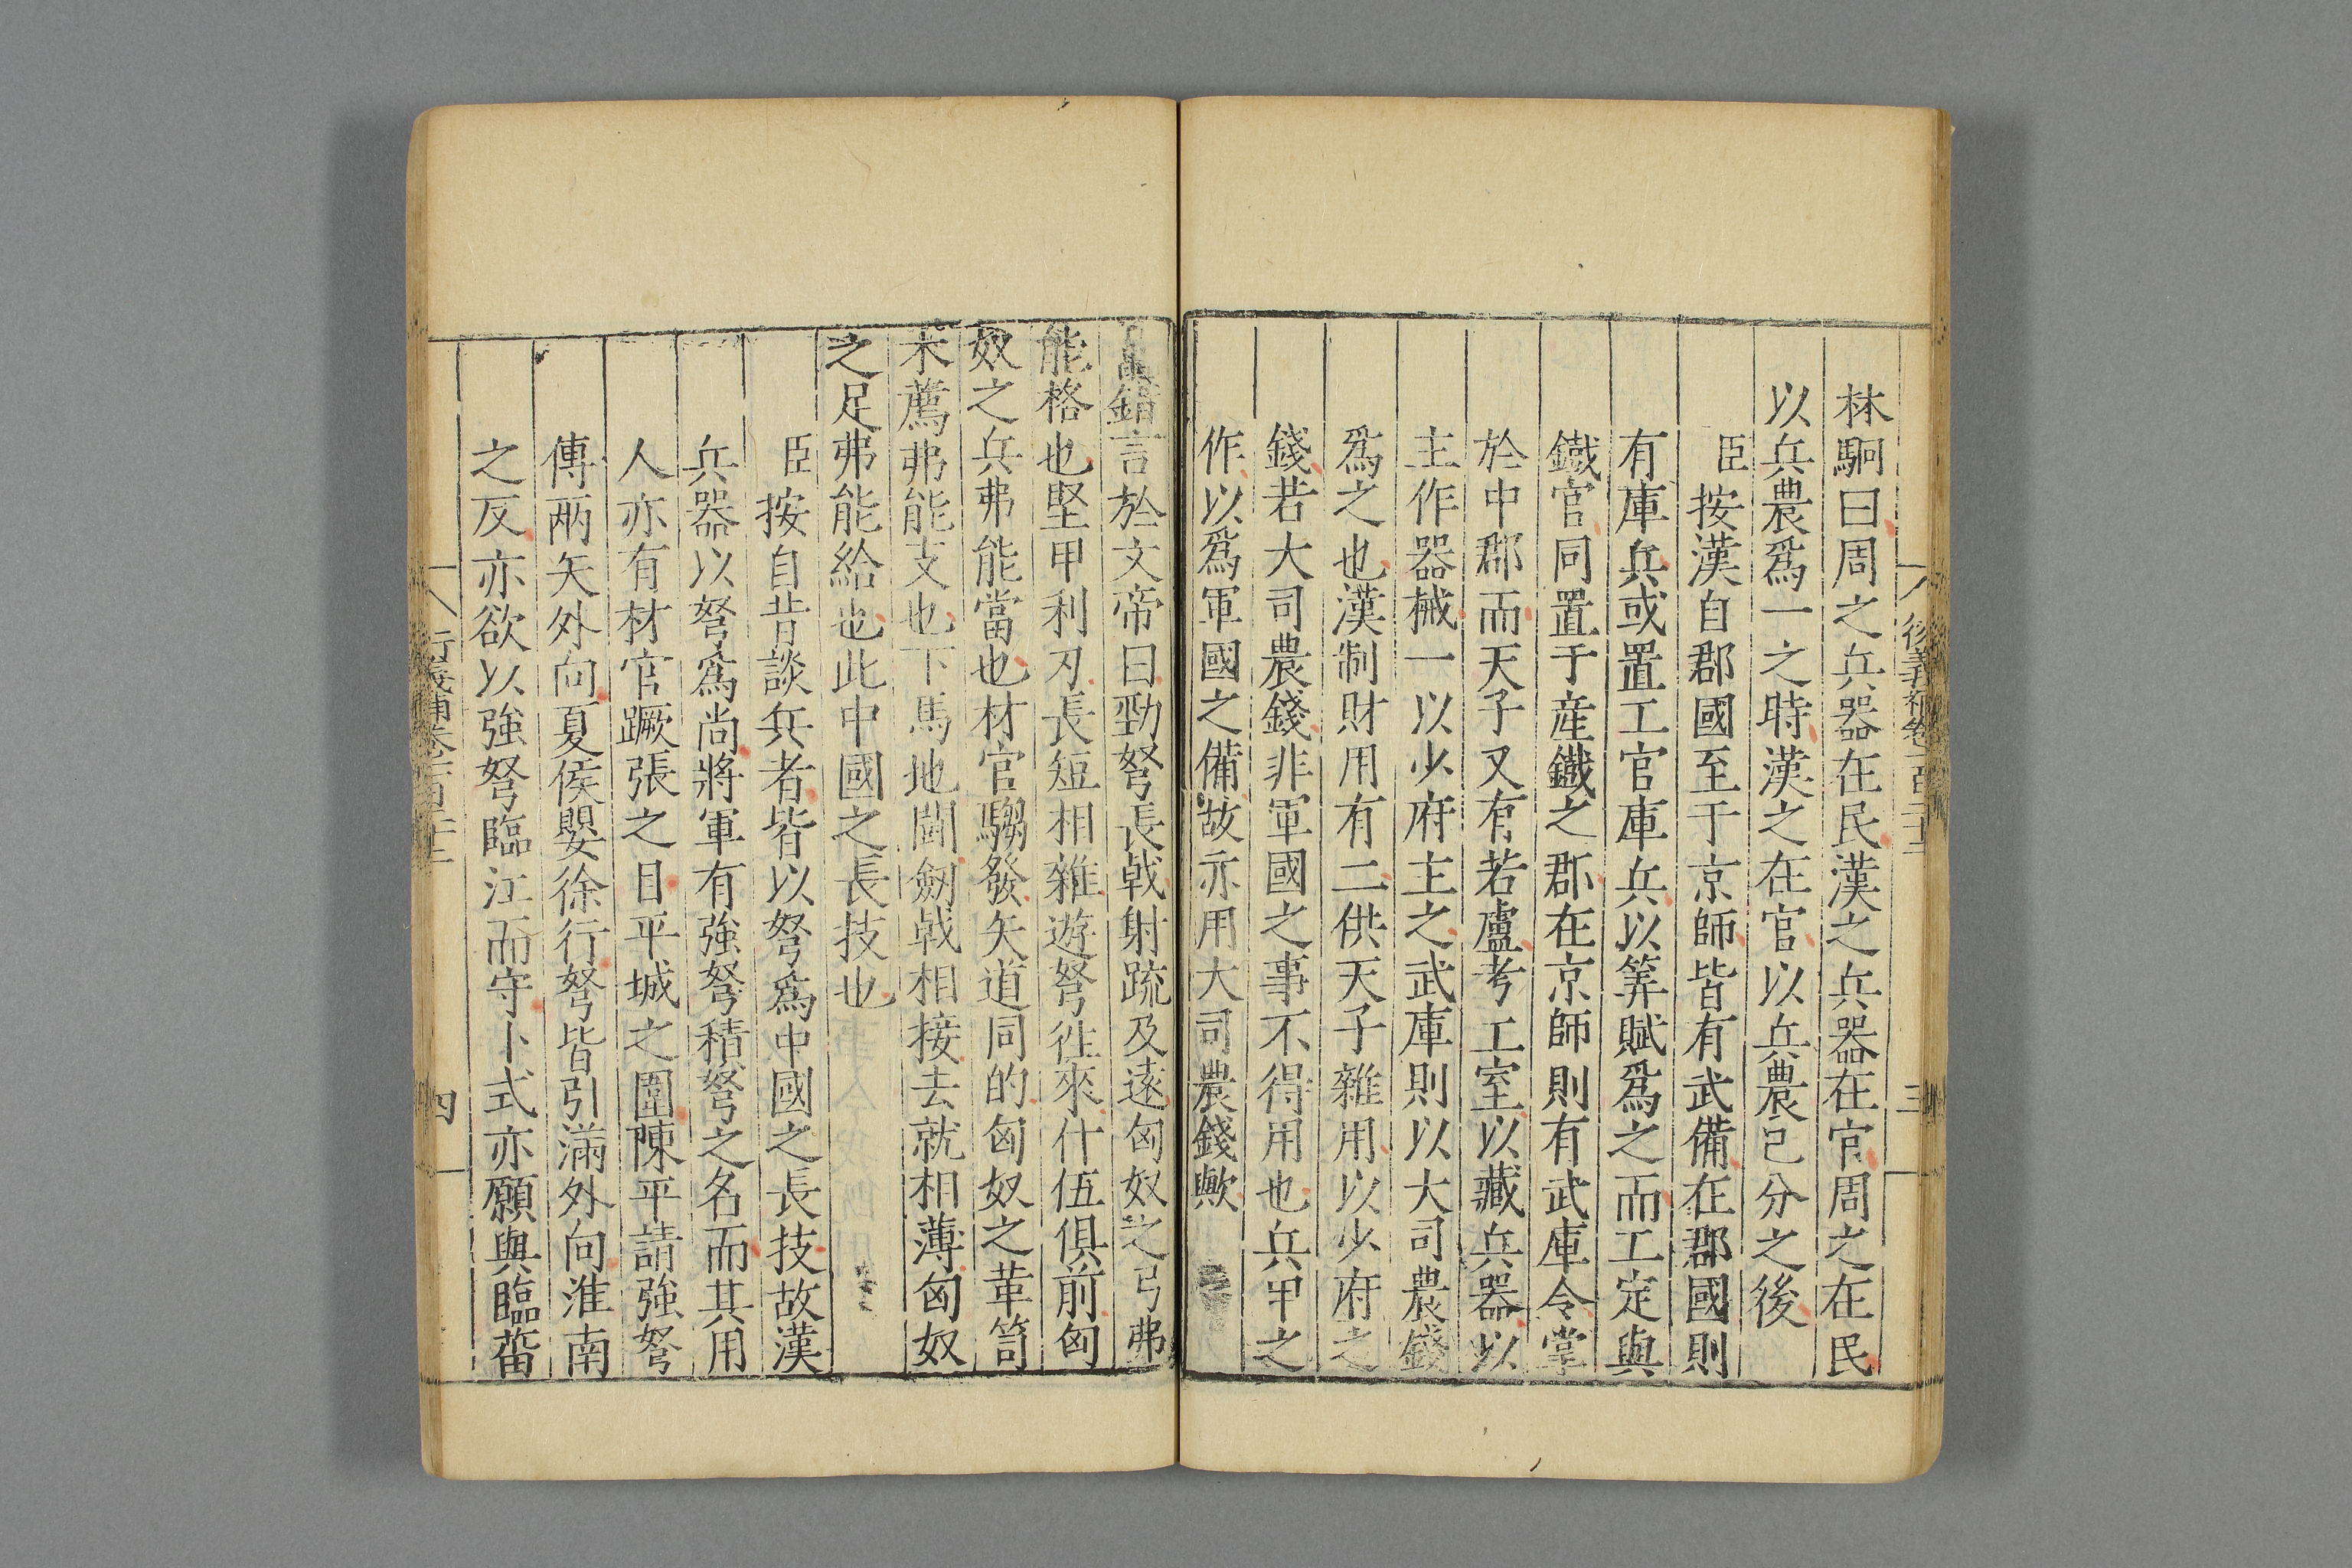 林駉曰周之兵器在民漢之兵器在官周之在民
以兵農爲一之時漢之在官以兵農已分之後
臣按漢自郡國至于京師皆有武備在郡國則
有庫兵或置工官庫兵以筭賦爲之而工定與
鐵官同置于産鐵之郡在京師則有武庫令掌
於中郡而天子又有若盧考工室以藏兵器以
主作器械一以少府主之武庫則以大司農錢
爲之也漢制財用有二供天子雜用以少府之
錢若大司農錢非軍國之事不得用也兵甲之
作以爲軍國之備故亦用大司農錢歟
三
錯言於文帝曰勁弩長戟射疏及遠匈奴之弓弗
能格也堅甲利刃長短相雜遊弩徃來什伍俱前匈
奴之兵弗能當也材官騶發矢道同的匈奴之革笥
木薦弗能支也下馬地鬪劒戟相接去就相薄匈奴
之足弗能給也此中國之長技也
臣按自昔談兵者皆以弩爲中國之長技故漢
兵器以弩爲尚將軍有強弩積弩之名而其用
人亦有材官蹶張之目平城之圍陳平請強弩
傳兩矢外向夏侯嬰徐行弩皆引滿外向淮南
之反亦欲以強弩臨江而守卜式亦願與臨菑
四